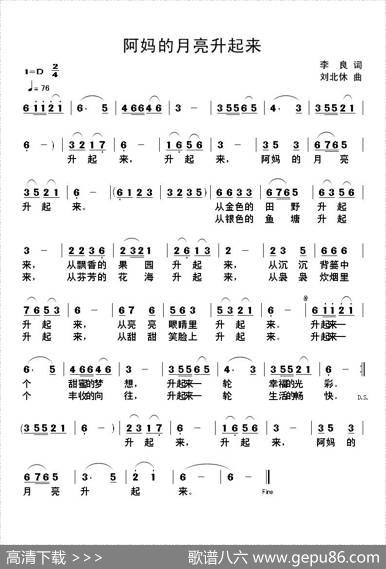 阿妈的月亮升起来
1=D 2/4
李 良 词
♩=76
刘北休 曲
6 1 1 2 1 | 6· 5 | 4 6 6 4 6 | 3 - | 3 5 5 6 5 | 3 5 5 2 1
6 - ) | 3 2 1 7 | 6 - | 1 6 5 6 | 3 - | 2 3 5 6 | 6 7 6 5
升 起 来, 升 起 来, 阿妈 的 月 亮
3 5 2 1 | 6 - | (6 1 2 3 | 6 -) | 3 2 3 1 2 | 6 7 6 5 | 6 3 5 6
升 起 来。 从金色的 田 野 升 起
从银色的 鱼 塘 升 起
3 - | 2 2 3 6 | 2 3 2 1 | 2 6 1 3 | 2 - | 2 3 5 | 5 3 2 3 5
来, 从飘香的 果 园 升 起 来, 从沉 沉 背篓中
来, 从芬芳的 花 海 升 起 来, 从袅 袅 炊烟里
7 6 5 3 | 5 - | 2 3 5 | 1 2 1 6 | 5 6 7 5 | 6 - | 6 1 1 2 1
升 起 来, 从亮 亮 眼睛里 升 起 来。 升起来一
升 起 来, 从甜 甜 笑脸上 升 起 来。 升起来一
6· 5 | 4 6 6 4 6 | 3· 2 | 3 5 5 6 5 | 6· 3 | 3 5 5 2 1 | 6 -
个 甜蜜的梦 想, 升起来一 轮 幸福的光 彩。
个 丰收的向 往, 升起来一 轮 生活的畅 快。 D.S.
(3 5 5 2 1 | 6 -) | 3 2 1 7 | 6 - | 1 6 5 6 | 3 - | 2 3 5 6
升 起 来, 升 起 来, 阿妈 的
6 7 6 5 | 3 5 2 1 | 6 - | 6 - ‖
月 亮 升 起 来。 Fine
高清下载 >>>
歌谱八六 www.gepu86.com